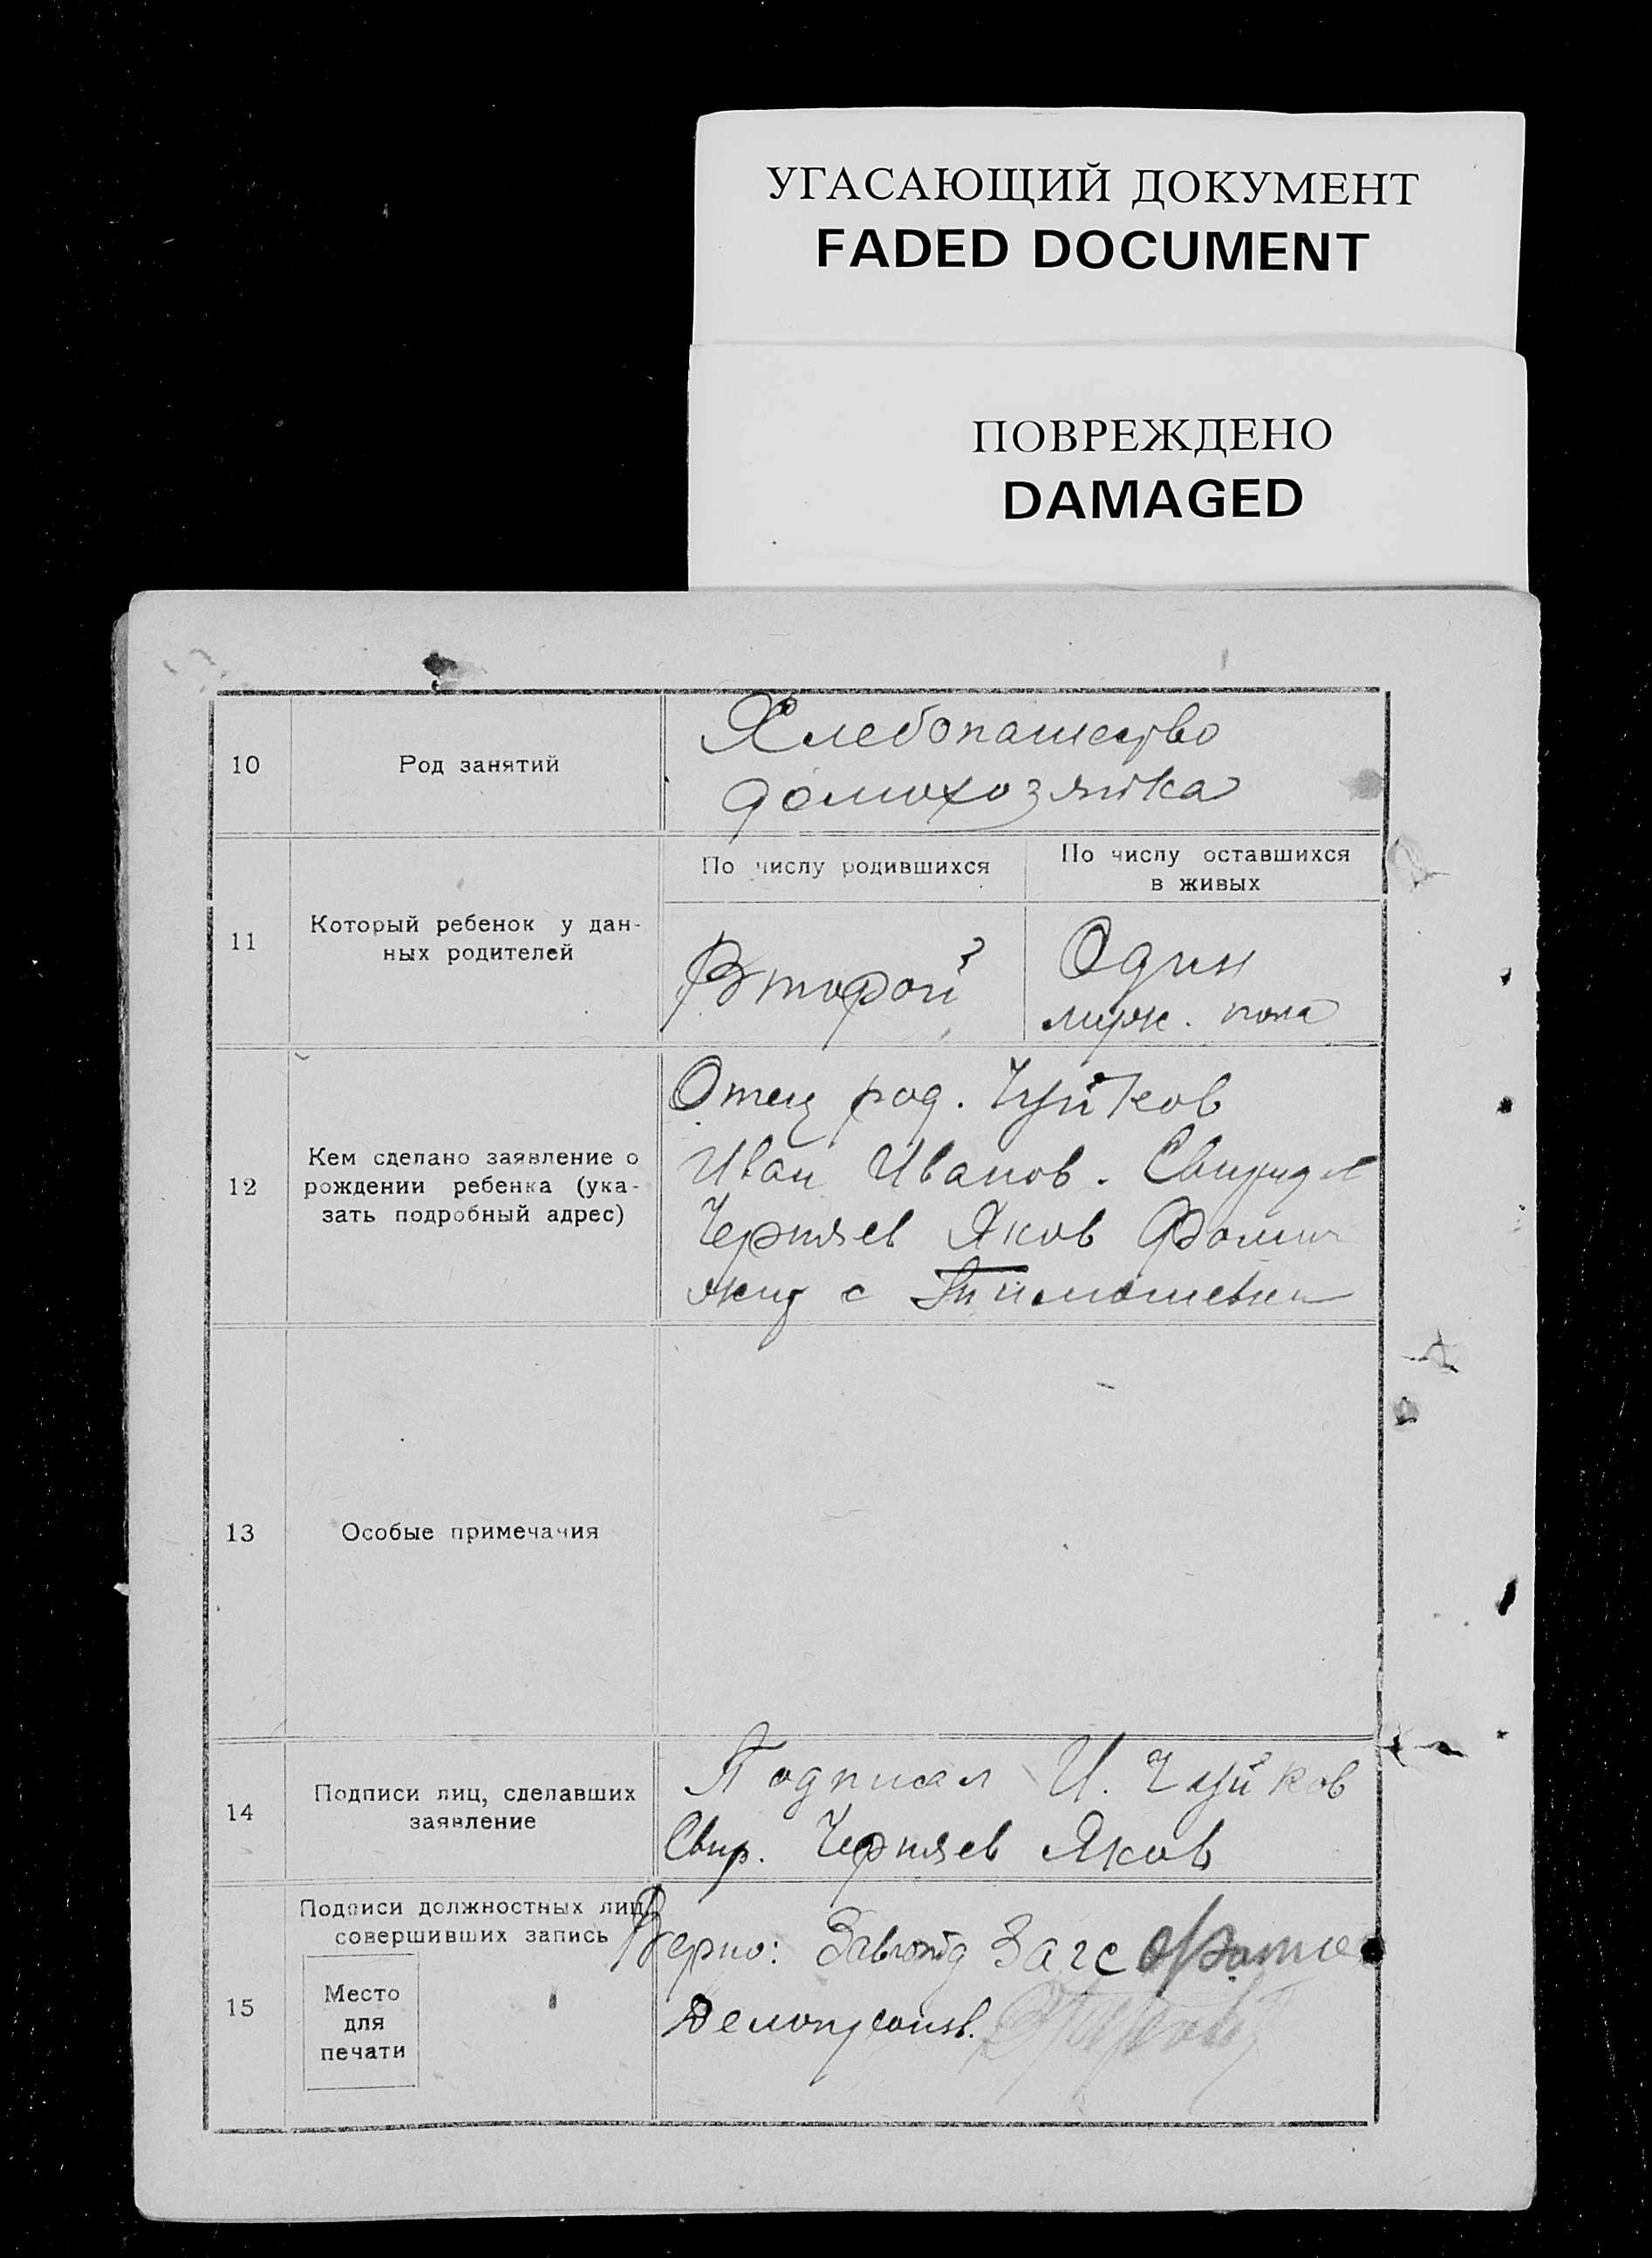 УГАСАЮЩИЙ ДОКУМЕНТ
FADED DOCUMENT
ПОВРЕЖДЕНО
DAMAGED
10
Род занятий
Хлебопашество
домохозяйка
11
Который ребенок у дан-
ных родителей
По числу родившихся
Второй
По числу оставшихся
в живых
Один
муж. пола
12
Кем сделано заявление о
рождении ребенка (ука-
зать подробный адрес)
Отец род. Чуйков
Иван Иванов. Свидет
Черняев Яков Фомич
жит с Тимошевки
13
Особые примечания
14
Подписи лиц, сделавших
заявление
Подписал И. Чуйков
Свид. Черняев Яков
15
Подписи должностных лиц,
совершивших запись
Место
для
печати
Верно: Завполит Загс
Делопроизв.